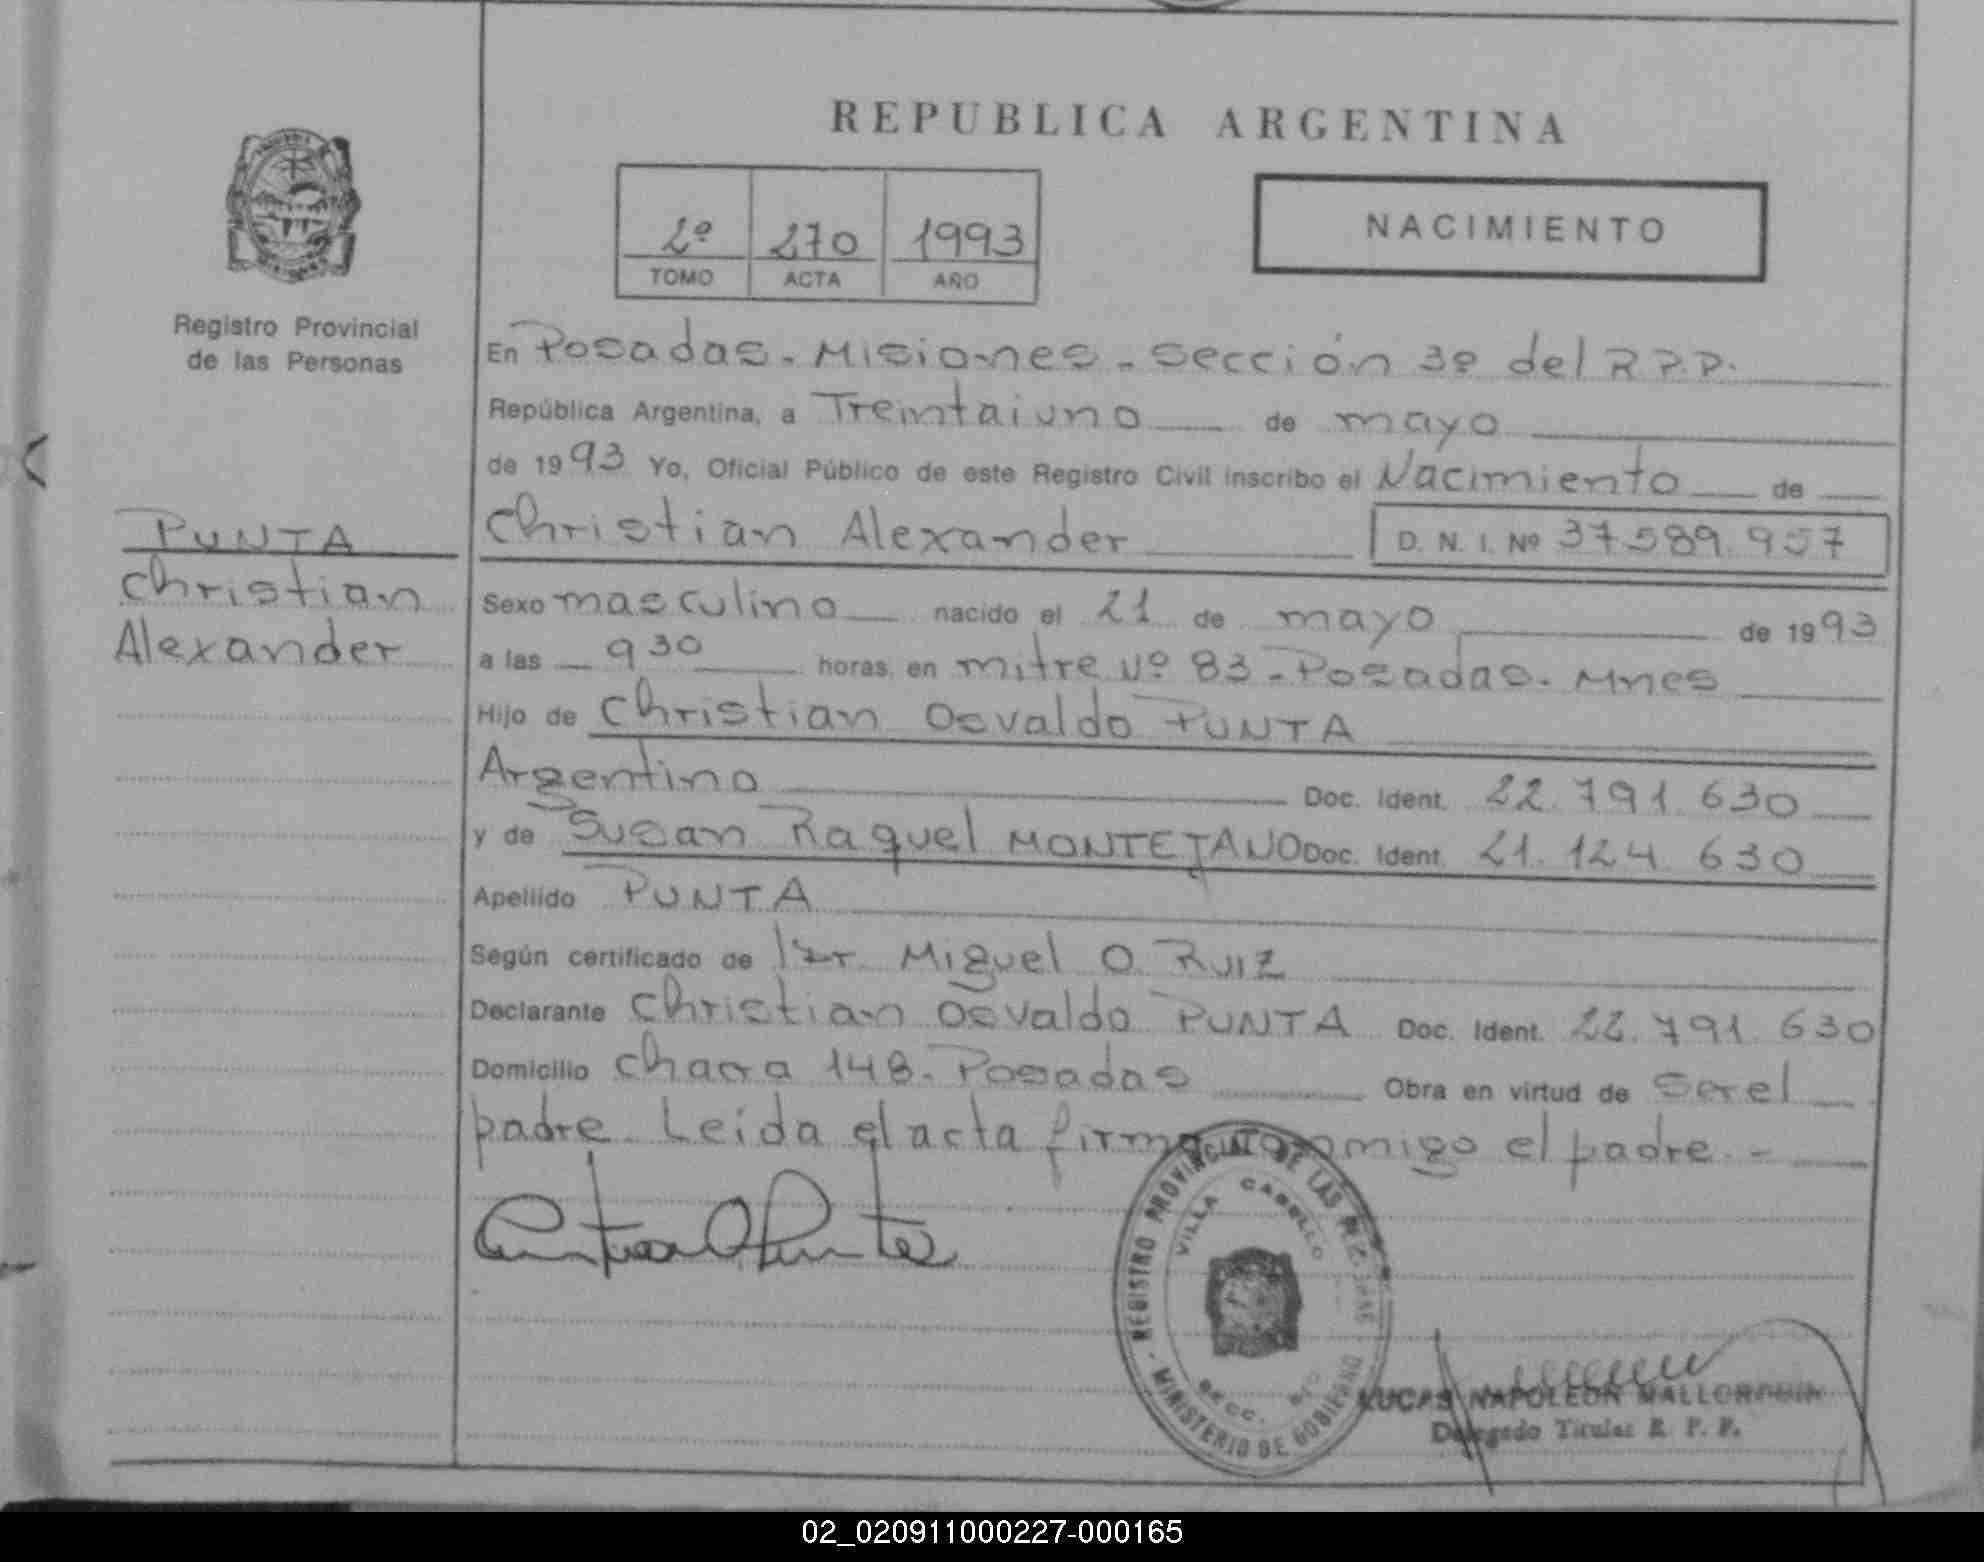 REPUBLICA ARGENTINA
2º 270 1993
TOMO ACTA AÑO
NACIMIENTO
Registro Provincial
de las Personas
PUNTA
Christian
Alexander
En Posadas - Misiones - Sección 3º del R.P.P.
República Argentina, a Treintaiuno de mayo
de 1993 Yo, Oficial Público de este Registro Civil inscribo el Nacimiento de
Christian Alexander D. N. I. Nº 37.589.957
Sexo masculino nacido el 21 de mayo de 1993
a las 9 30 horas, en mitre Nº 83 - Posadas - Mnes
Hijo de Christian Osvaldo PUNTA
Argentino Doc. Ident. 22.791.630
y de Susan Raquel MONTEJANO Doc. Ident. 21.124.630
Apellido PUNTA
Según certificado de Dr. Miguel O. RUIZ
Declarante Christian Osvaldo PUNTA Doc. Ident. 22.791.630
Domicilio Chacra 148 - Posadas Obra en virtud de Ser el
padre. Leída el acta firma conmigo el padre. -
REGISTRO PROVINCIAL DE LAS PERSONAS
VILLA CABELLO
SECC.
MINISTERIO DE GOBIERNO
LUCAS NAPOLEON
Delegado Titular R. P. P.
02_020911000227-000165